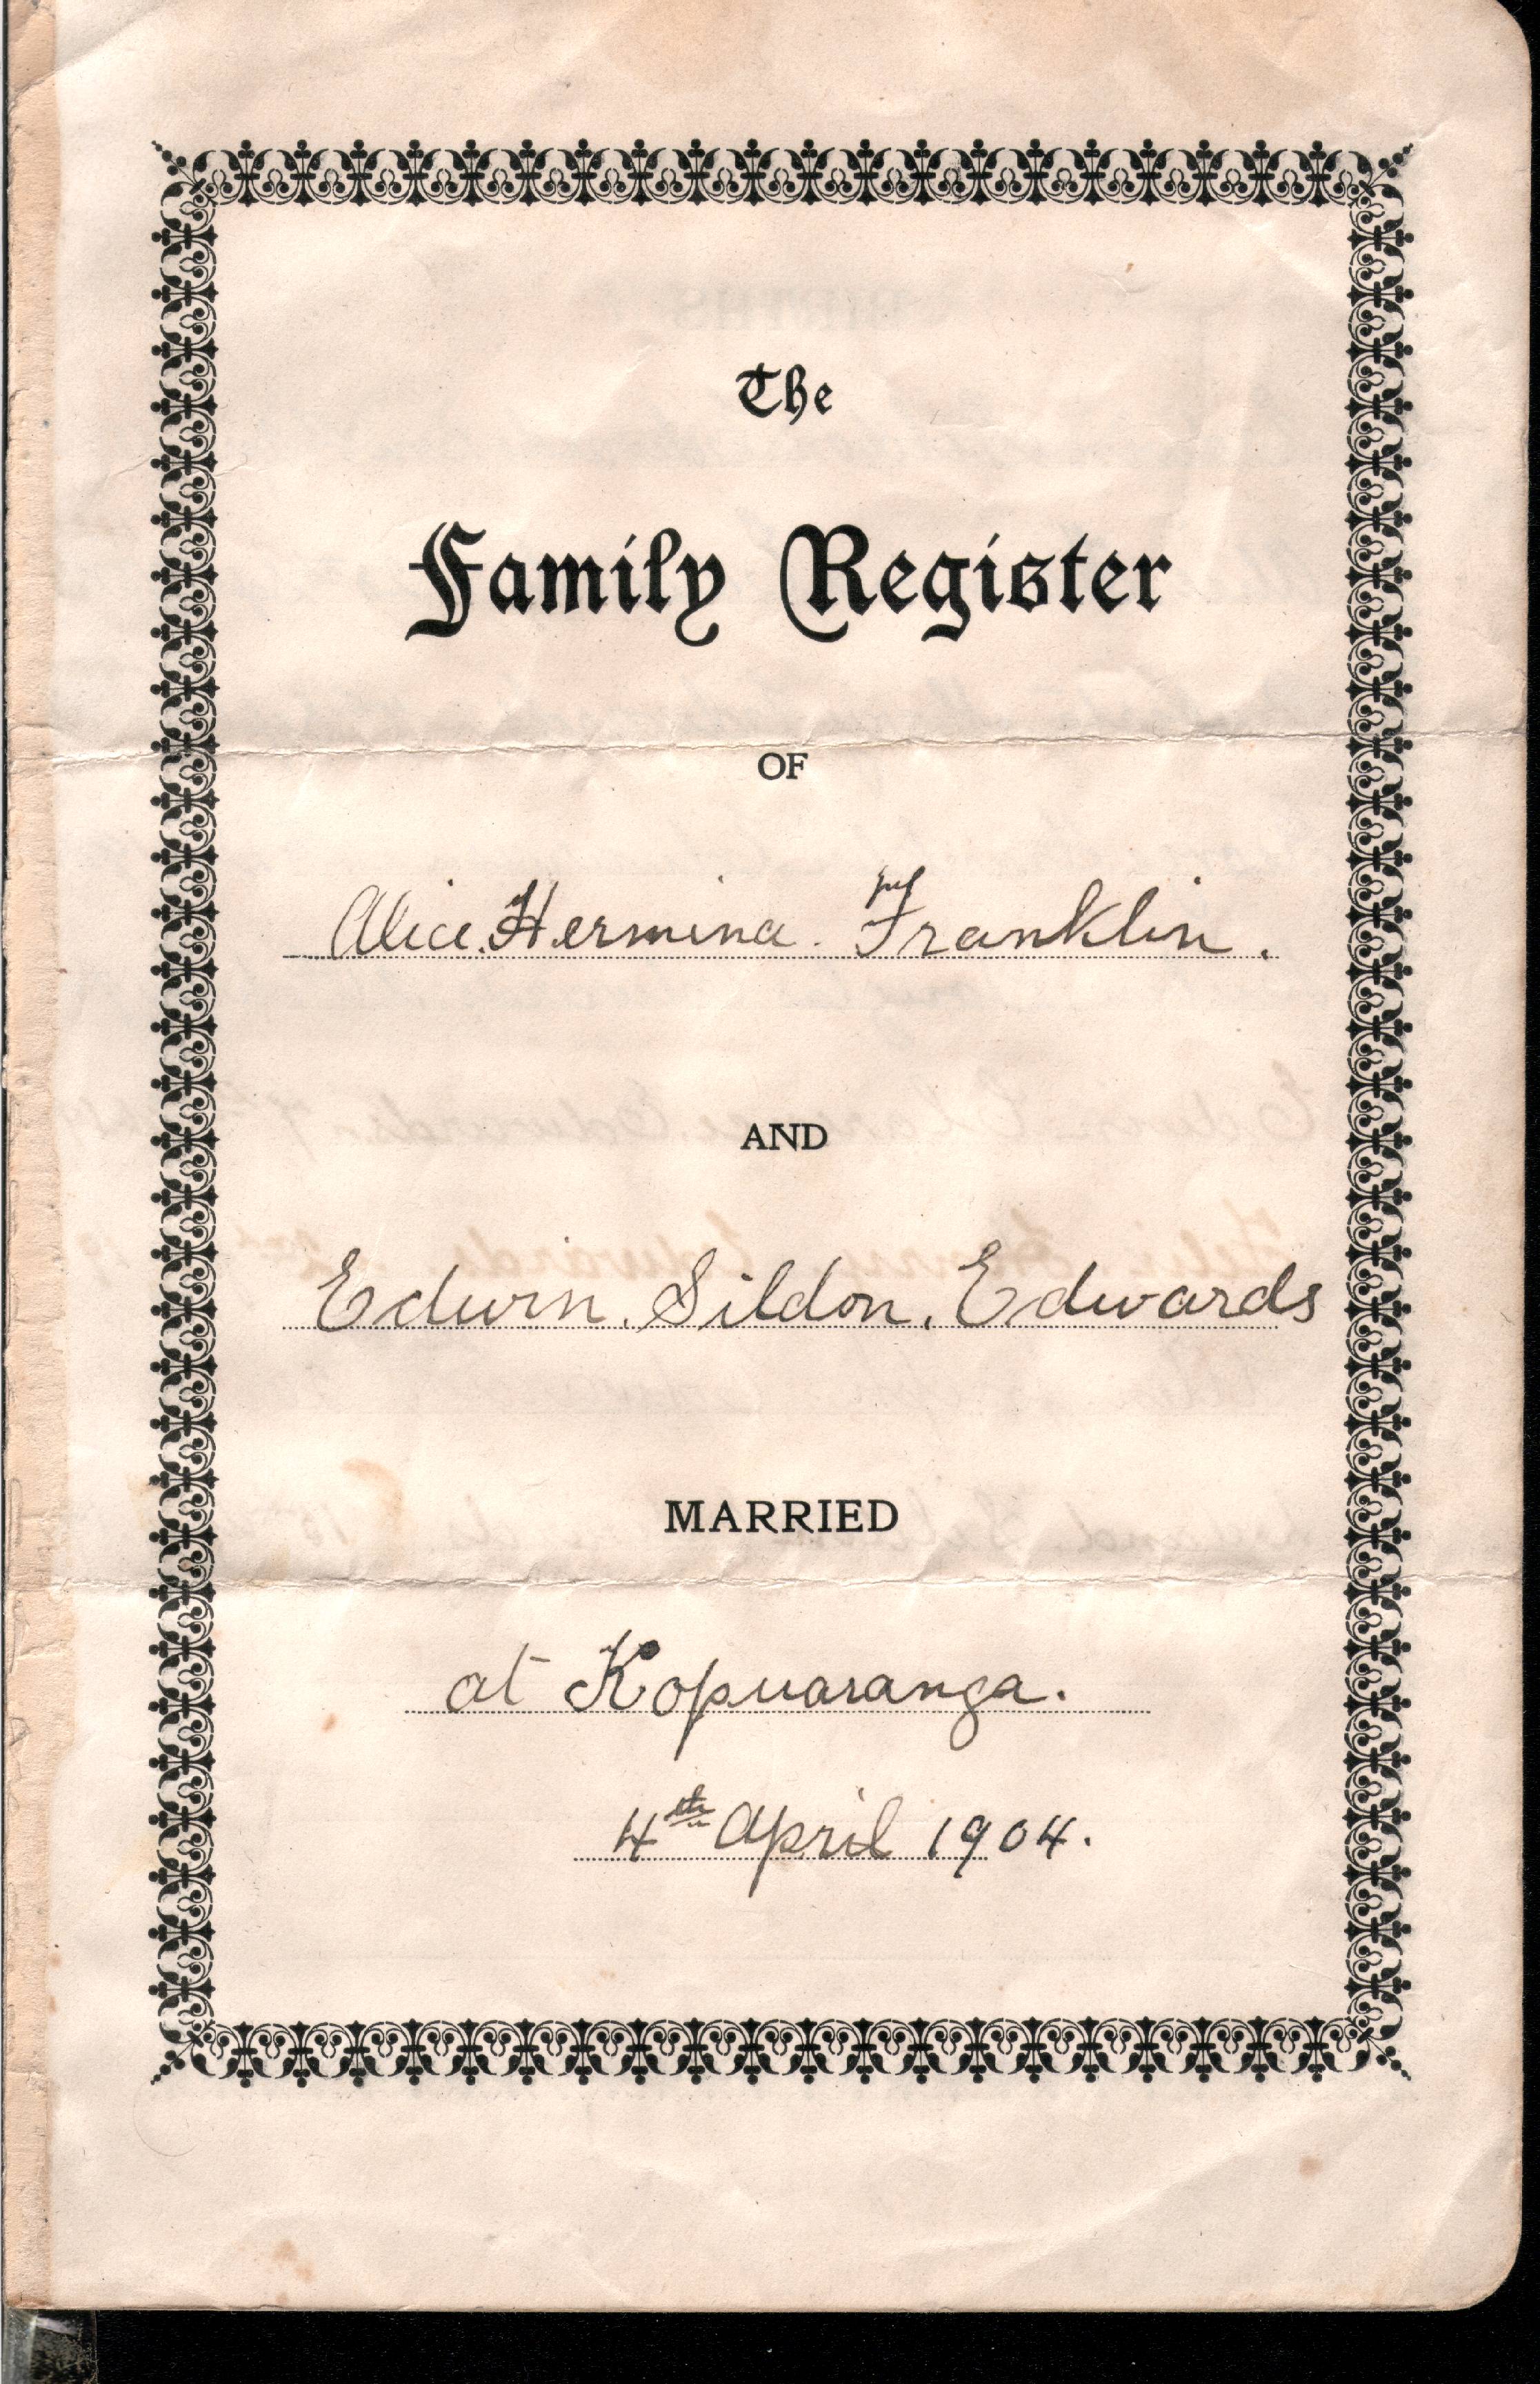 The
Family Register
OF
Alice. Hermina. Franklin.
AND
Edwin. Sildon. Edwards
MARRIED
at Kopuaranga.
4th April 1904.